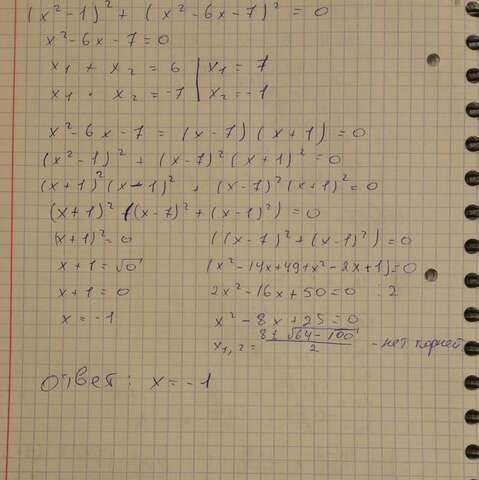 (x²-1)² + (x²-6x-7)² = 0
x²-6x-7=0
x₁ + x₂ = 6 | x₁ = 7
x₁ · x₂ = -7 | x₂ = -1
x²-6x-7 = (x-7)(x+1)=0
(x²-1)² + (x-7)²(x+1)²=0
(x+1)²(x-1)² + (x-7)²(x+1)²=0
(x+1)²((x-7)²+(x-1)²)=0
(x+1)²=0 ((x-7)²+(x-1)²)=0
x+1=√0 (x²-14x+49+x²-2x+1)=0
x+1=0 2x²-16x+50=0 :2
x=-1 x²-8x+25=0
x₁,₂ = (8±√(64-100))/2 - нет корней
Ответ: x=-1